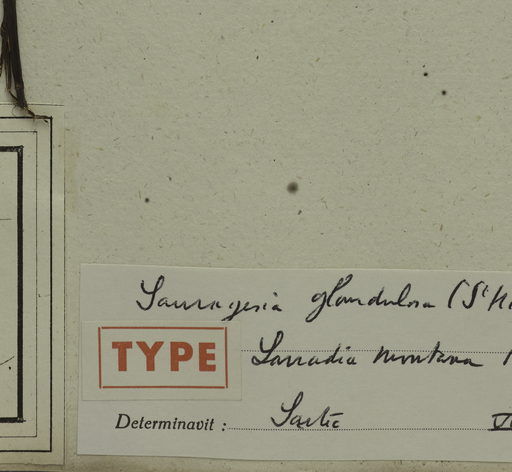 Sauvagesia glandulosa (St Hi
TYPE
Lavradia montana
Determinavit : Sastre